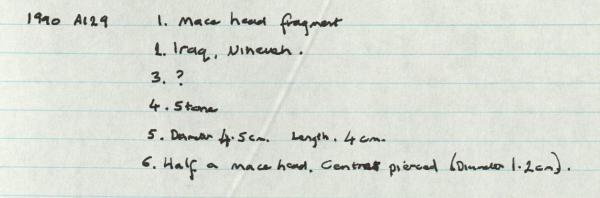 1990 A129 1. Mace head fragment
2. Iraq, Nineveh.
3. ?
4. Stone
5. Diameter 4.5cm. Length. 4cm.
6. Half a mace head. Central pierced (Diameter 1.2cm).